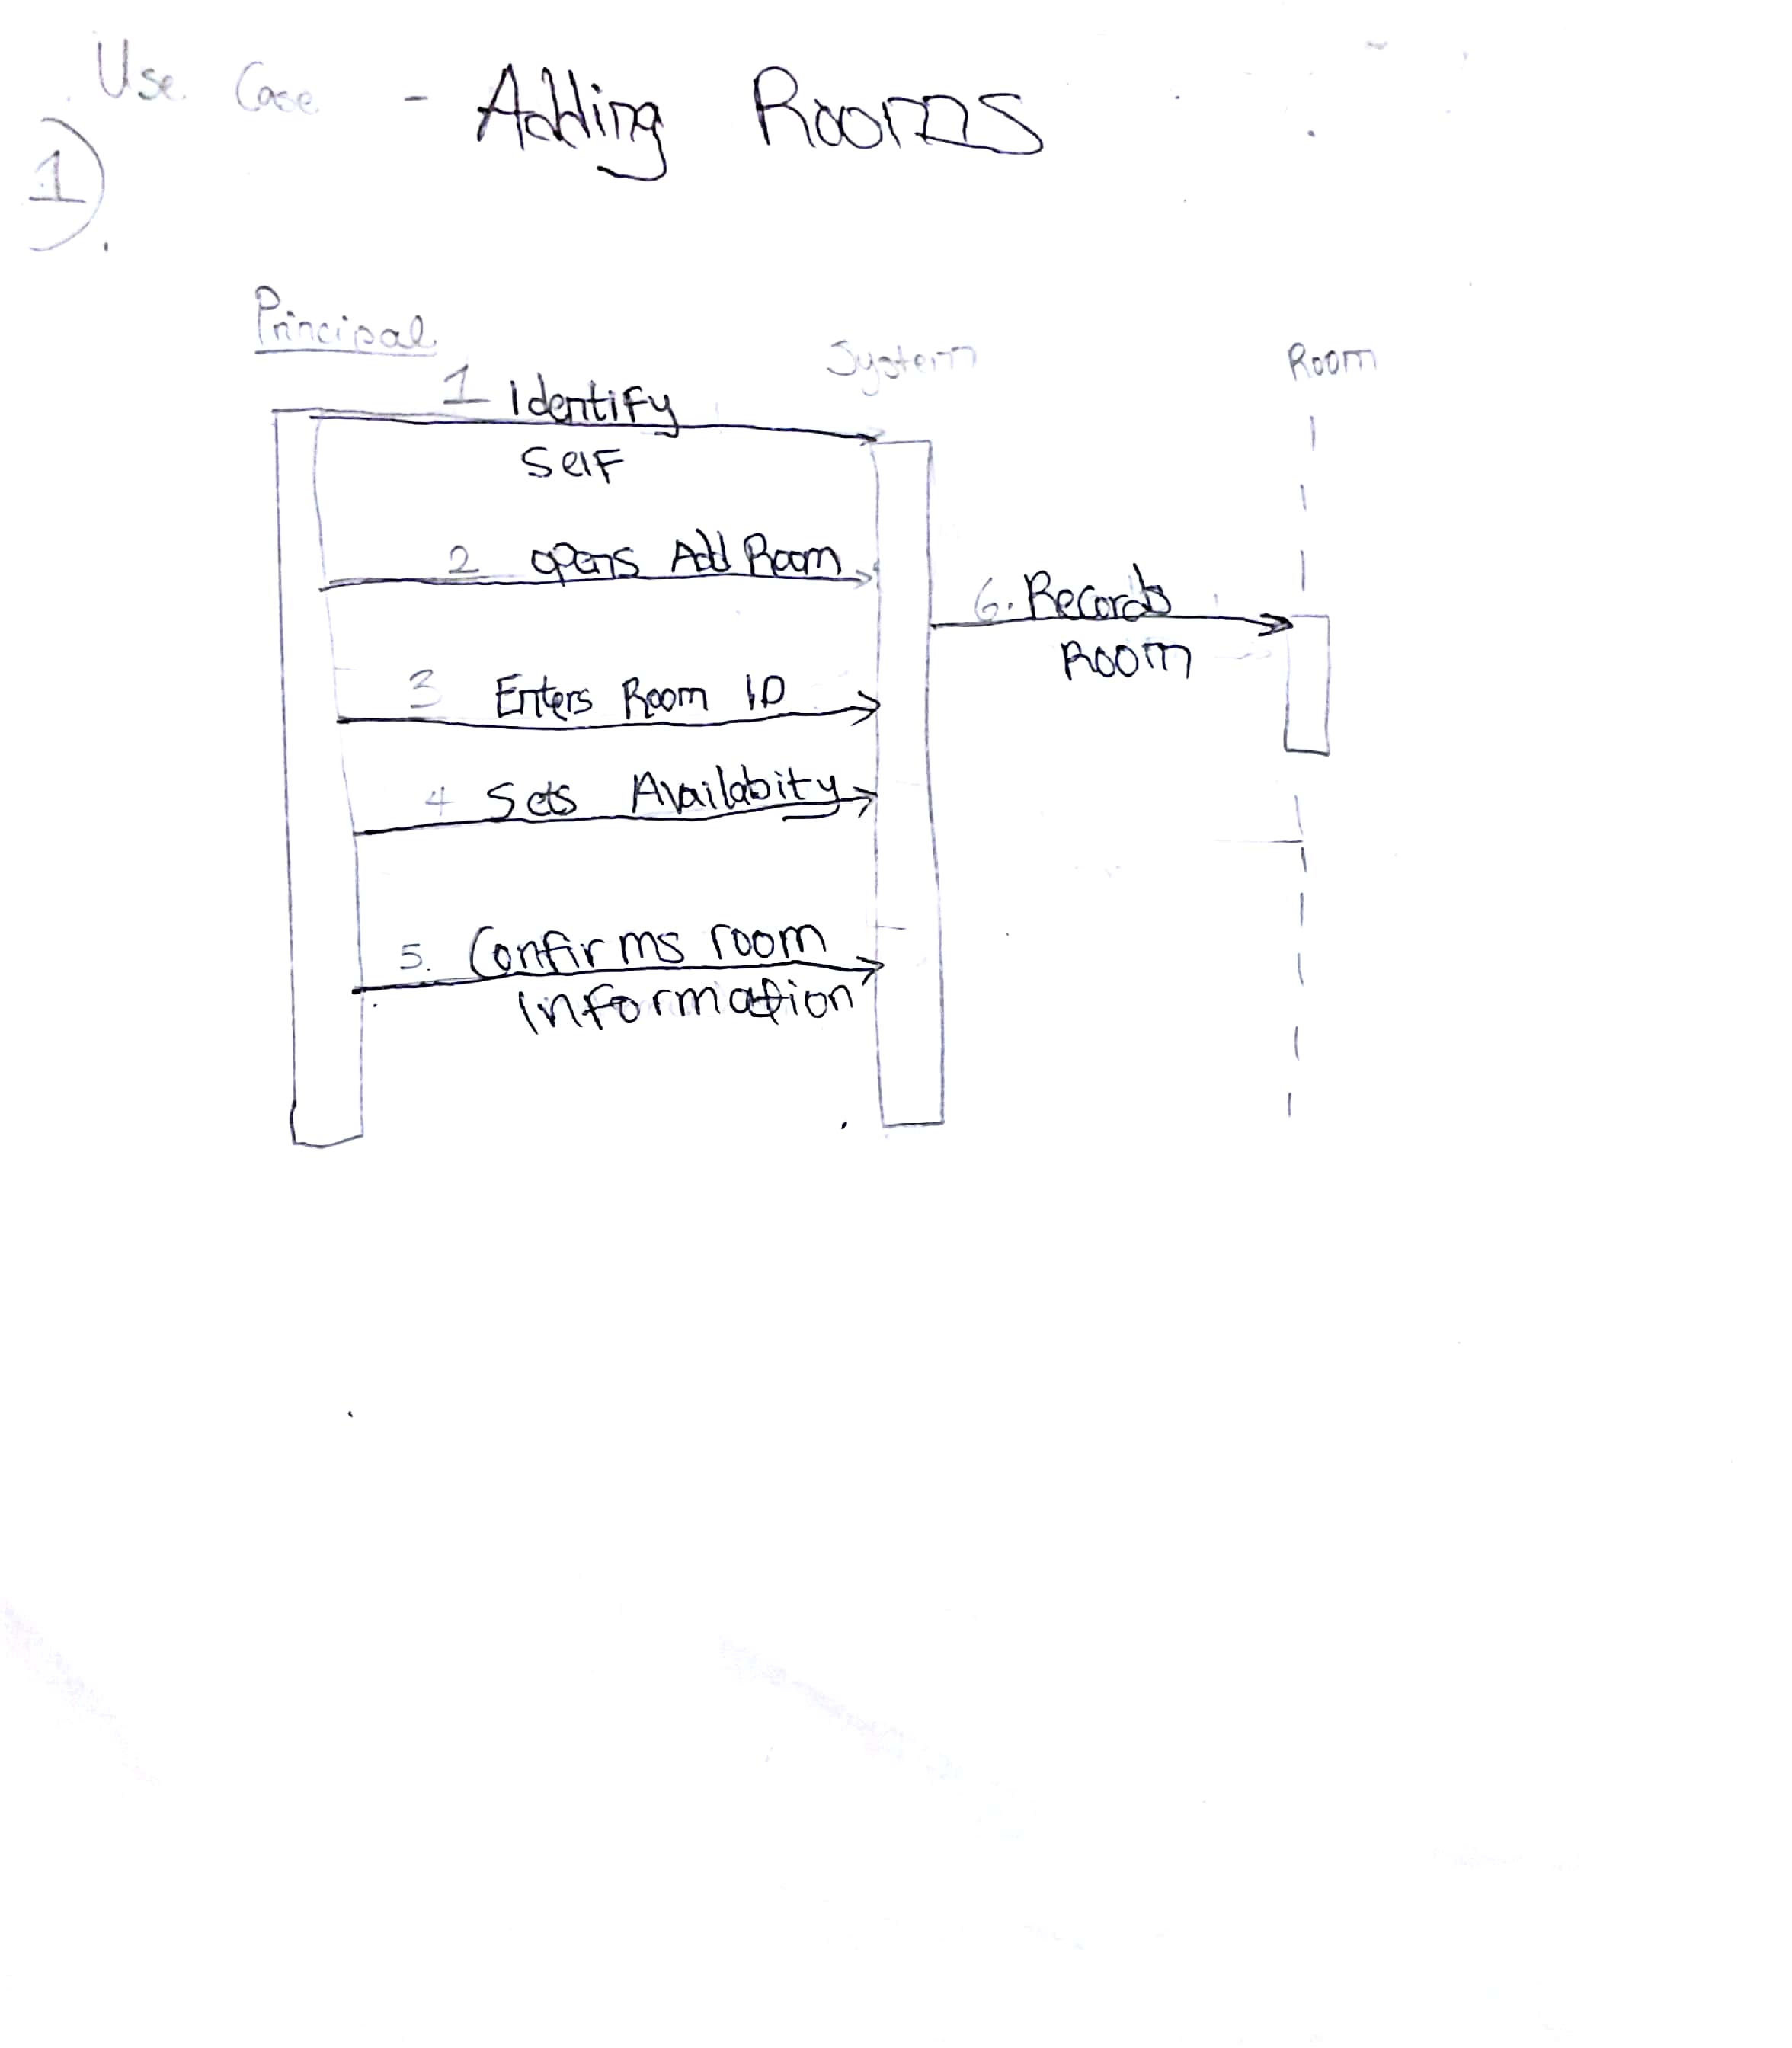 Use Case - Adding Rooms
1
Principal
System
Room
1 Identify
Self
2 opens Add Room
6. Records
Room
3 Enters Room ID
4 Sets Availabity
5. Confirms room
information